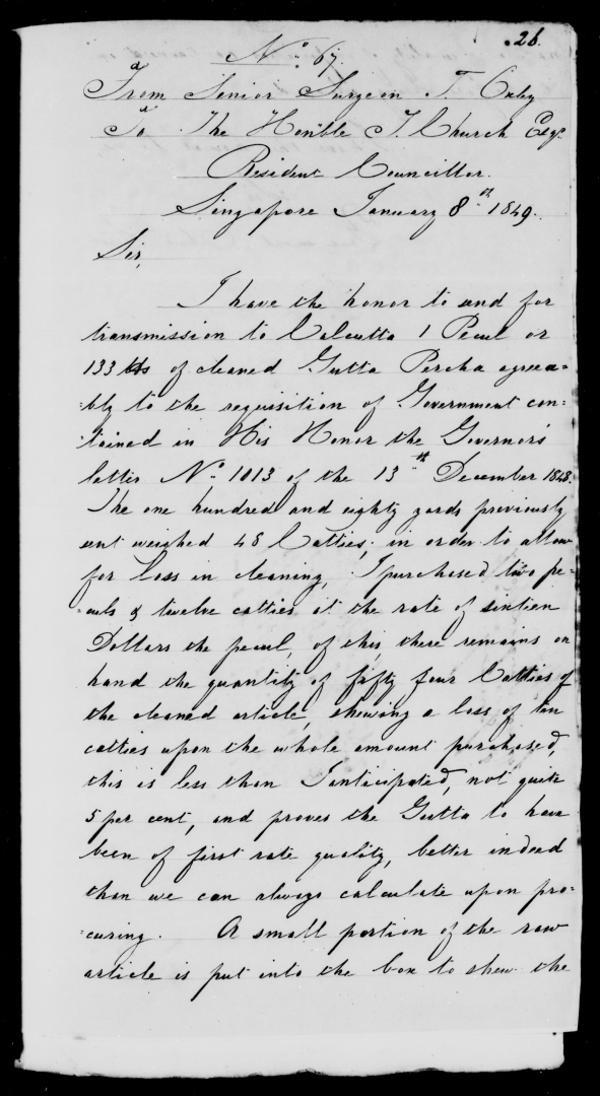 26.
No. 67.
From Senior Surgeon T. Oxley
To The Honble T. Church Esqr.
Resident Councillor.
Singapore January 8th 1849.
Sir,
I have the honor to send for
transmission to Calcutta 1 Pecul or
133 lbs of cleaned Gutta Percha agreea-
-bly to the requisition of Government con-
-tained in His Honor the Governor's
letter No. 1013 of the 13th December 1848.
The one hundred and eighty yards previously
sent weighed 48 Catties; in order to allow
for loss in cleaning, I purchased two pe-
-culs & twelve catties at the rate of sixteen
Dollars the pecul, of this there remains on
hand the quantity of fifty four Catties of
the cleaned article, shewing a loss of ten
catties upon the whole amount purchased,
this is less than I anticipated, not quite
5 per cent, and proves the Gutta to have
been of first rate quality, better indeed
than we can always calculate upon pro-
-curing. A small portion of the raw
article is put into the box to shew the